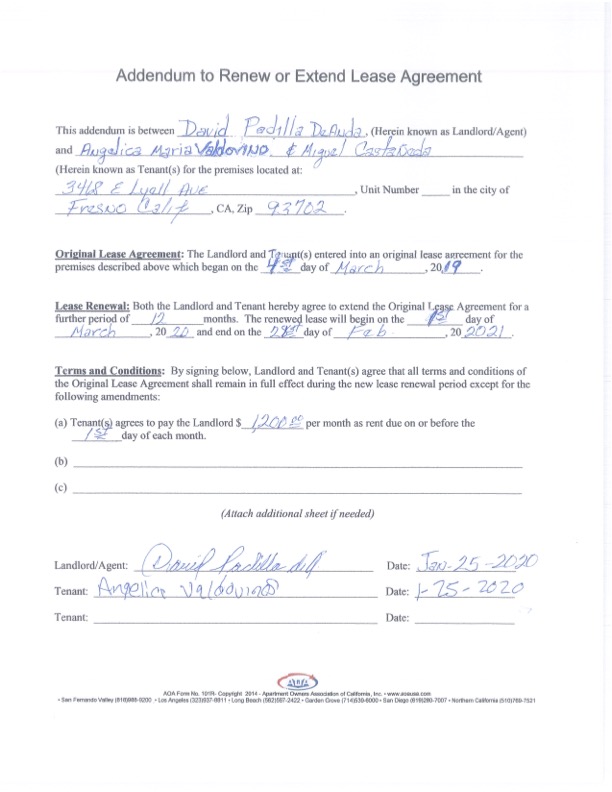 Addendum to Renew or Extend Lease Agreement
This addendum is between David Padilla DeAnda, (Herein known as Landlord/Agent)
and Angelica Maria Valdovino & Miguel Castañeda
(Herein known as Tenant(s) for the premises located at:
3468 E Lyell Ave, Unit Number ____ in the city of
Fresno Calif, CA, Zip 93702.
Original Lease Agreement: The Landlord and Tenant(s) entered into an original lease agreement for the
premises described above which began on the 1st day of March, 2019.
Lease Renewal: Both the Landlord and Tenant hereby agree to extend the Original Lease Agreement for a
further period of 12 months. The renewed lease will begin on the 1st day of
March, 20 20 and end on the day of Feb., 20 2021.
Terms and Conditions: By signing below, Landlord and Tenant(s) agree that all terms and conditions of
the Original Lease Agreement shall remain in full effect during the new lease renewal period except for the
following amendments:
(a) Tenant(s) agrees to pay the Landlord $ 1,200.00 per month as rent due on or before the
1st day of each month.
(b)
(c)
(Attach additional sheet if needed)
Landlord/Agent: David Padilla Date: Jan-25-2020
Tenant: Angelica Valdovinos Date: 1-25-2020
Tenant: Date:
AOA Form No. 101R- Copyright 2014 - Apartment Owners Association of California, Inc. • www.aoausa.com
• San Fernando Valley (818)988-9200 • Los Angeles (323)937-8811 • Long Beach (562)597-2422 • Garden Grove (714)539-6000 • San Diego (619)280-7007 • Northern California (510)769-7521